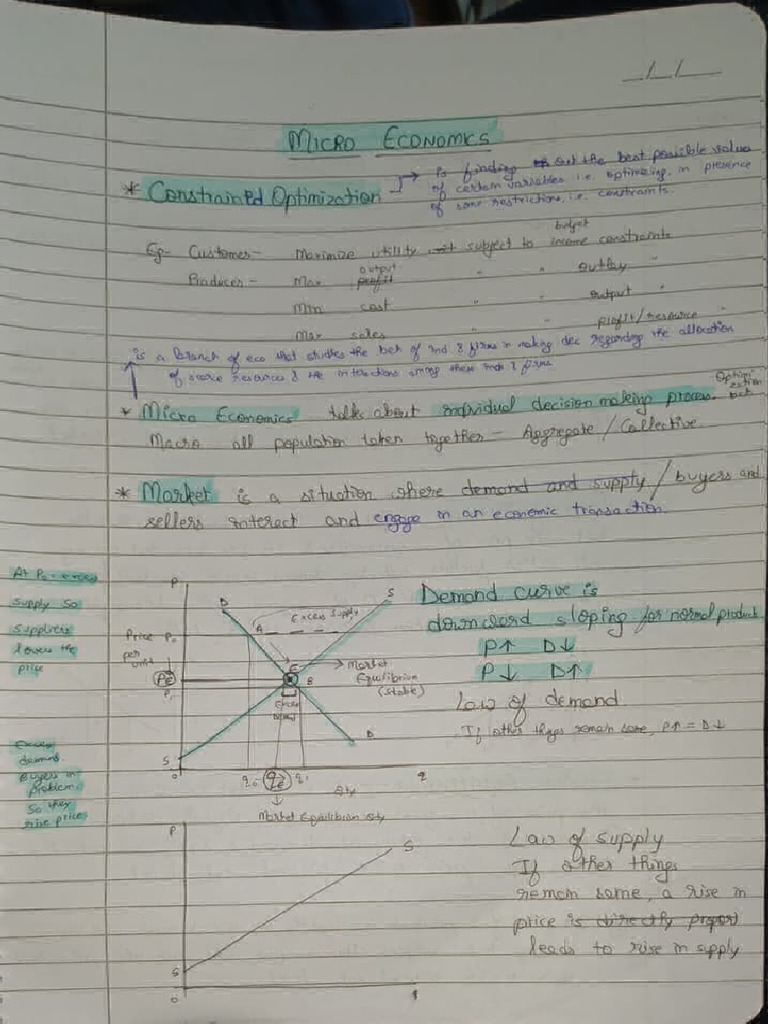 MICRO ECONOMICS
* Constrained Optimization → is finding out the best possible values
of certain variables i.e. optimizing, in presence
of some restrictions, i.e. constraints.
budget
Eg- Customer - Maximize utility subject to income constraints
output
Producer - Max profit " " outlay "
Min cost " " output "
Max sales " " profit/resource "
is a branch of eco that studies the beh of ind & firms in making dec regarding the allocation
of scarce resources & the interactions among these ind & firms
Optimization
* Micro Economics talks about individual decision making process.
Macro all population taken together - Aggregate / Collective.
* Market is a situation where demand and supply / buyers and
sellers interact and engage in an economic transaction.
At P₀ - excess
supply so
suppliers
lowers the
price
Excess
demand
Buyers in
problem
So they
rise price
P
D
S
Excess Supply
A
Price P₀
per
unit
Pe
P₁
E
B
→ Market
Equilibrium
(stable)
Excess
demand
D
S
0
q₀ qe q₁
q
Qty
Market Equilibrium Qty
Demand curve is
downward sloping for normal product
P↑ D↓
P↓ D↑
Law of demand
If other things remain same, P↑ = D↓
P
S
S
0
Law of supply
If other things
remain same, a rise in
price is directly propor
leads to rise in supply